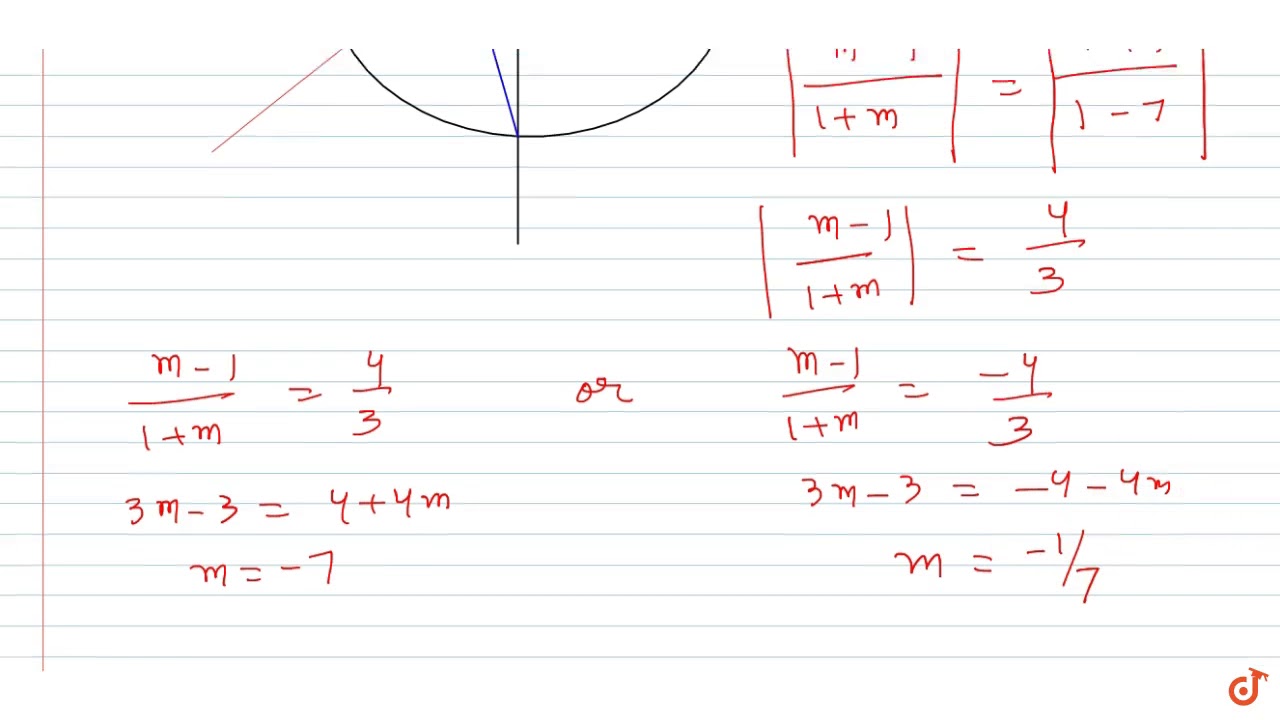 | / (1 + m) | = | / (1 - 7) |
| (m - 1) / (1 + m) | = 4 / 3
(m - 1) / (1 + m) = 4 / 3 or (m - 1) / (1 + m) = -4 / 3
3m - 3 = 4 + 4m 3m - 3 = -4 - 4m
m = -7 m = -1/7